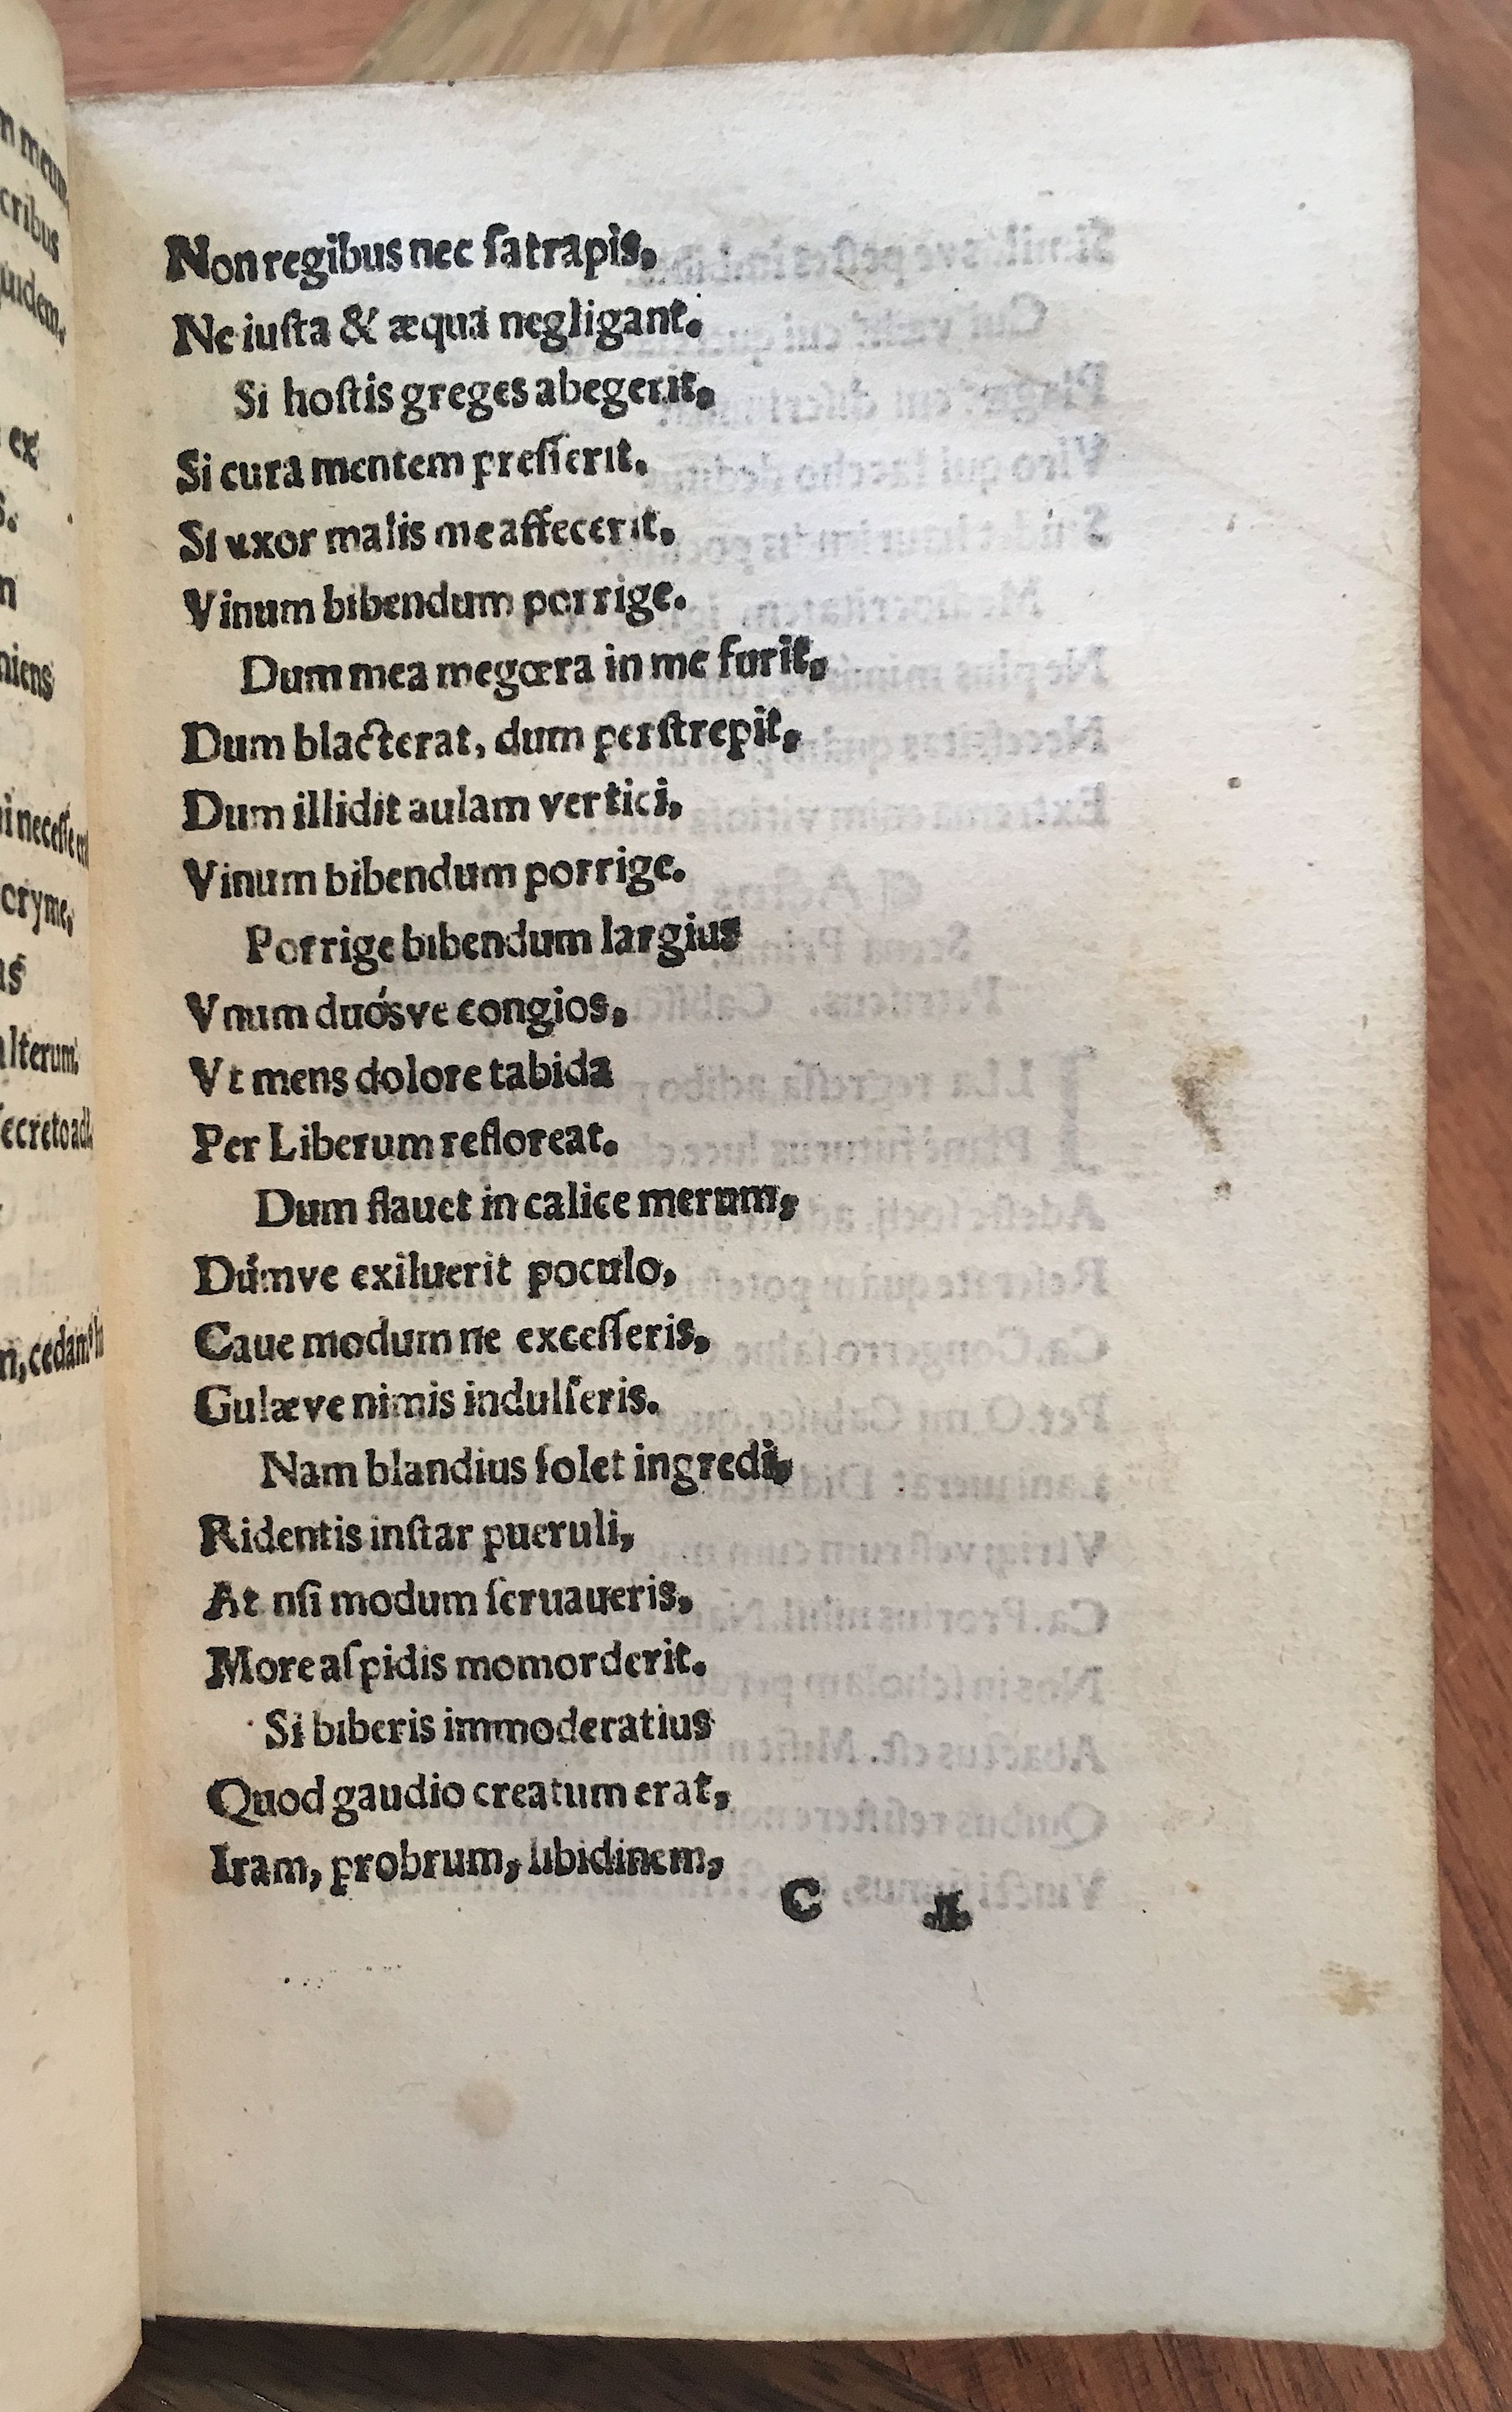 Non regibus nec ſatrapis,
Ne iuſta & æqua negligant.
Si hoſtis greges abegerit,
Si cura mentem preſſerit.
Si vxor malis me affecerit.
Vinum bibendum porrige.
Dum mea megœra in me furit,
Dum blacterat, dum perſtrepit,
Dum illidit aulam vertici,
Vinum bibendum porrige.
Porrige bibendum largius
Vnum duósve congios,
Vt mens dolore tabida
Per Liberum refloreat.
Dum flauet in calice merum,
Dúmve exiluerit poculo,
Caue modum ne exceſſeris,
Gulæve nimis indulſeris.
Nam blandius ſolet ingredi,
Ridentis inſtar pueruli,
At nſi modum ſeruaueris,
More aſpidis momorderit.
Si biberis immoderatius
Quod gaudio creatum erat,
Iram, probrum, libidinem,
C
n meum
cribus
quidem.
ex
niens
i neceſſe
oryme,
alterum.
ſecreto
n, cedam